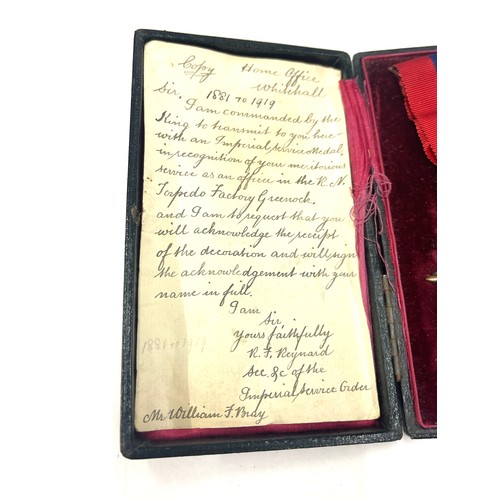 Copy Home Office
Whitehall
Sir, 1881 to 1919
I am commanded by the
King to transmit to you here-
with an Imperial Service Medal,
in recognition of your meritorious
service as an officer in the R.N.
Torpedo Factory Greenock.
and I am to request that you
will acknowledge the receipt
of the decoration and will sign
the acknowledgement with your
name in full.
I am
Sir
Yours faithfully
R. F. Reynard
Sec. &c of the
Imperial Service Order
1881 to 1919
Mr William F. Bray